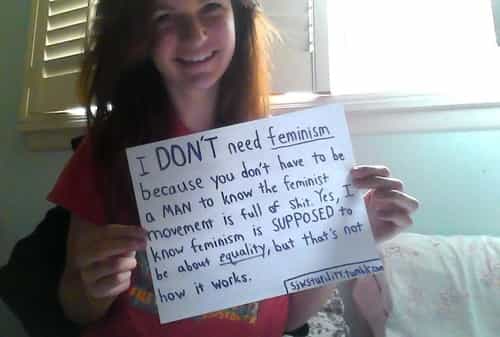 I DON'T need feminism
because you don't have to be
a MAN to know the feminist
movement is full of shit. Yes, I
know feminism is SUPPOSED to
be about equality, but that's not
how it works.
sjwstupidity.tumblr.com